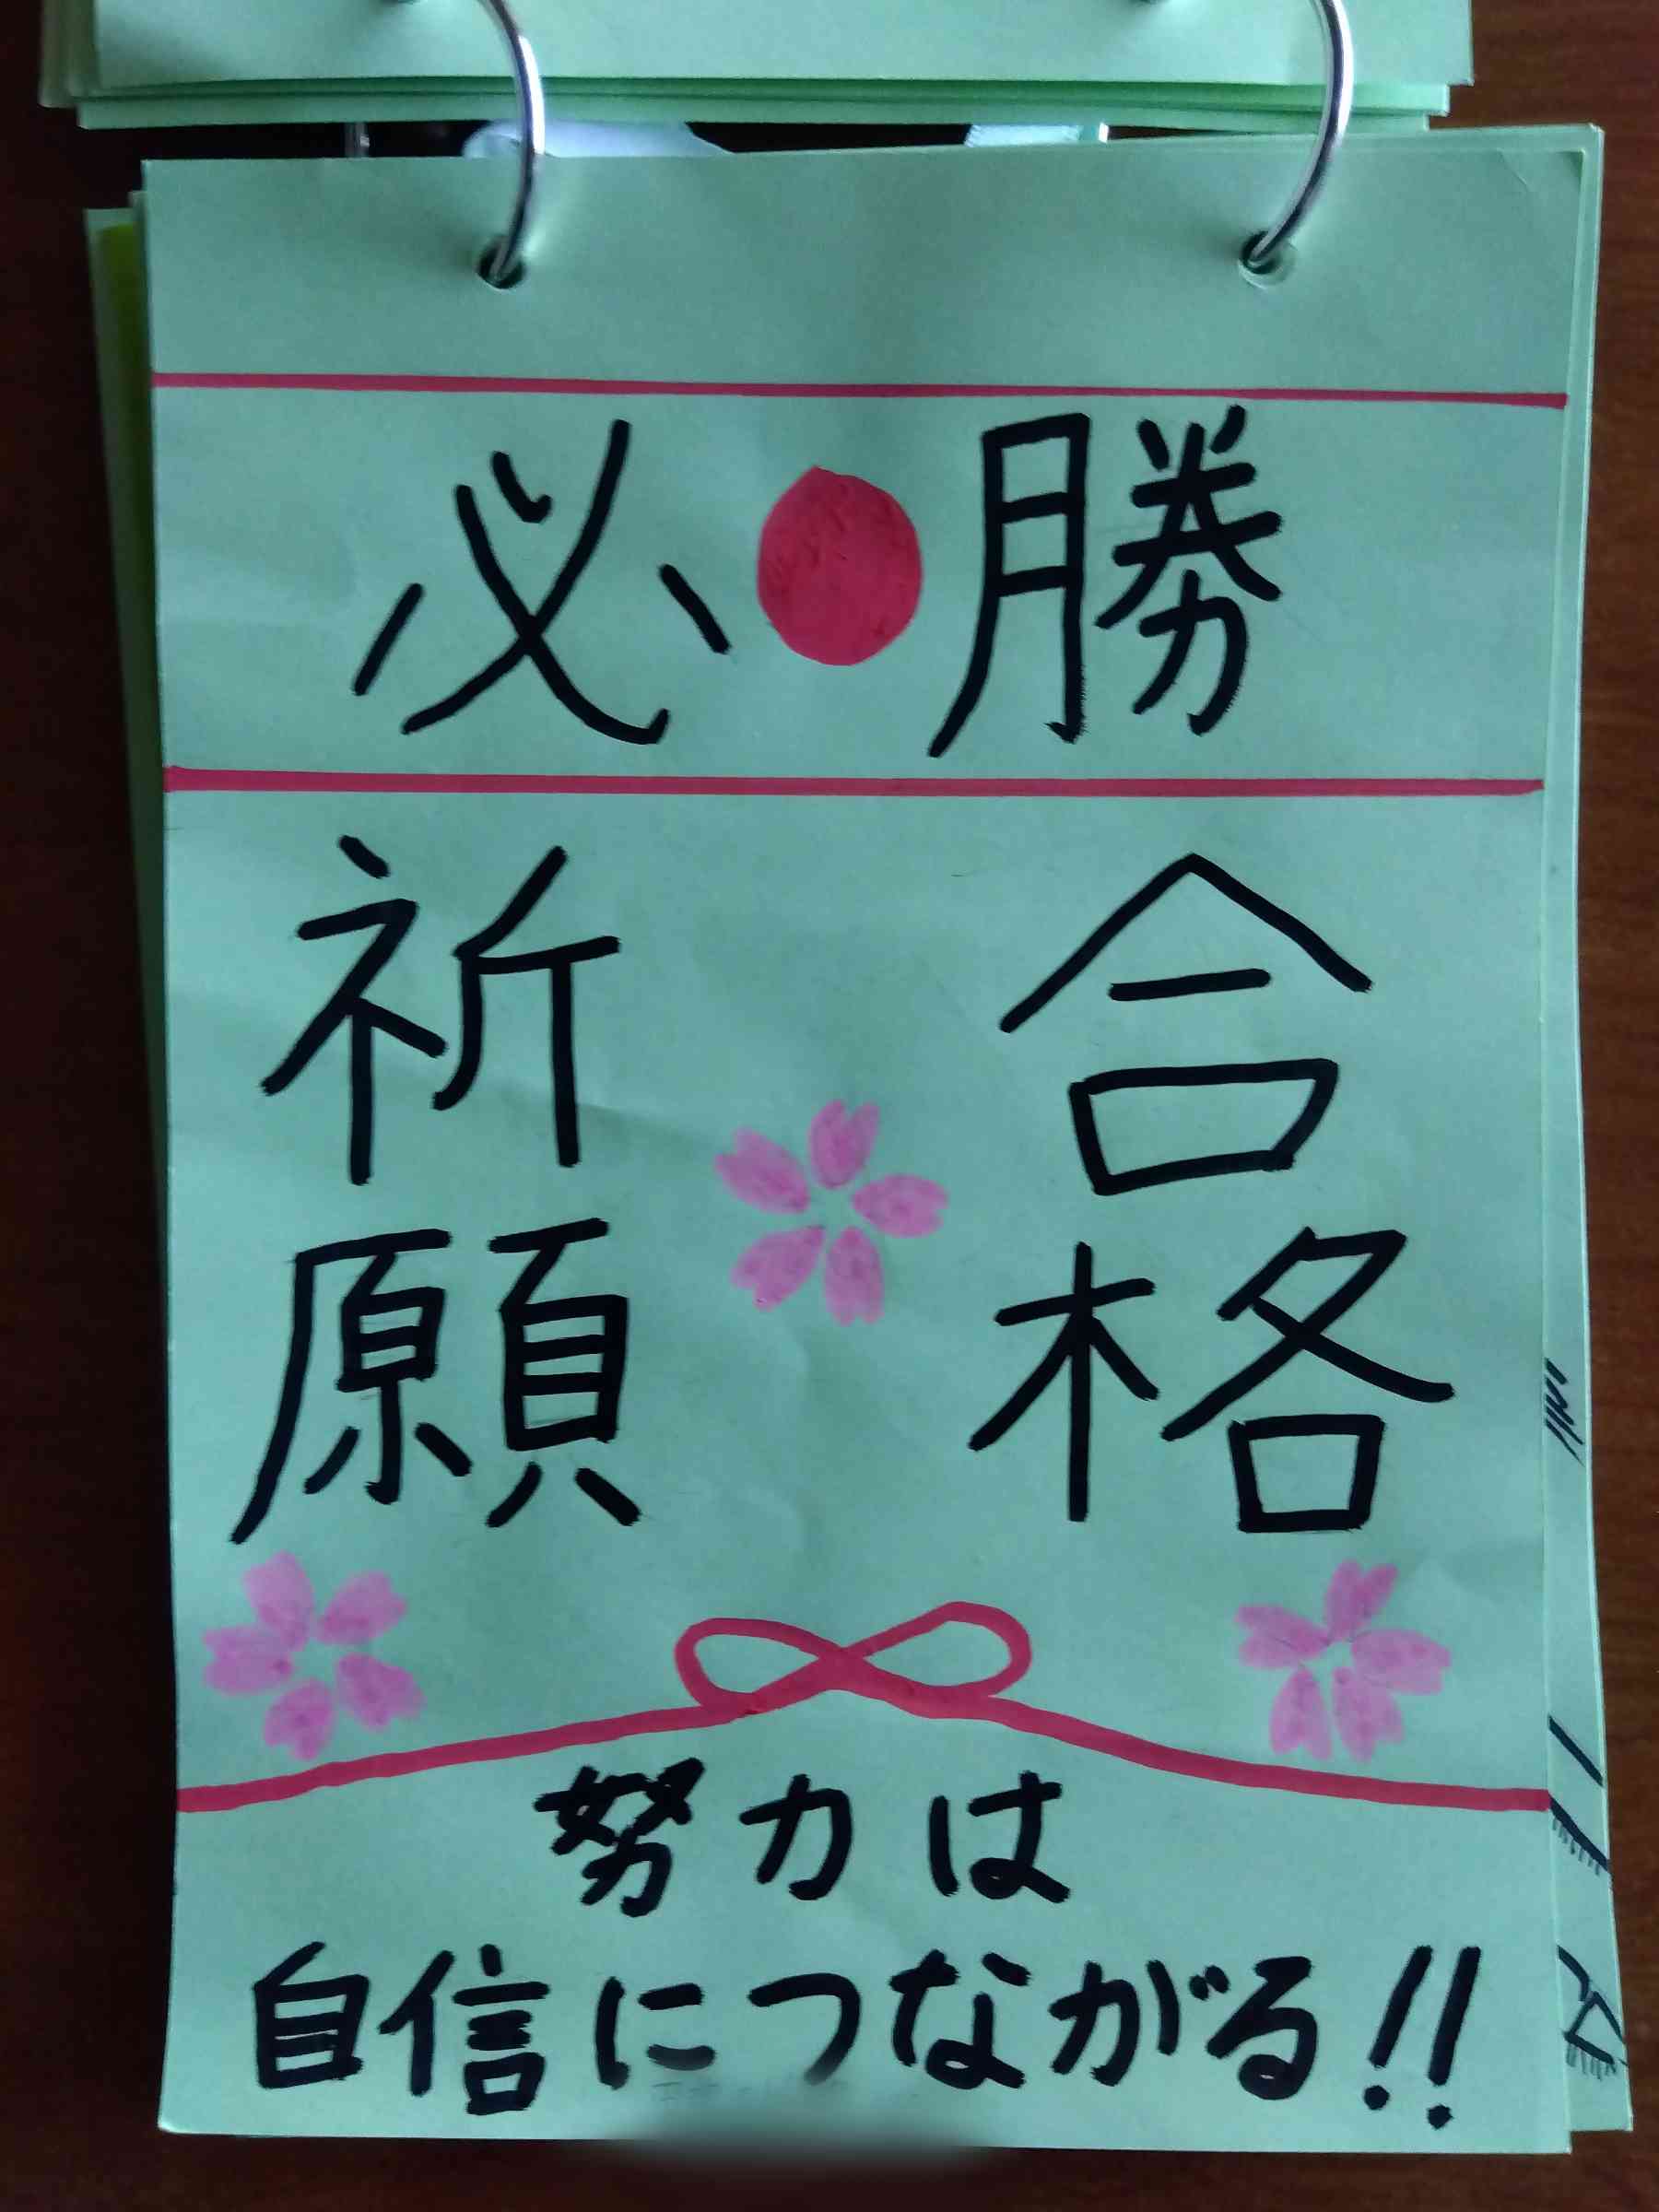 必勝
合格
祈願
努力は
自信につながる!!